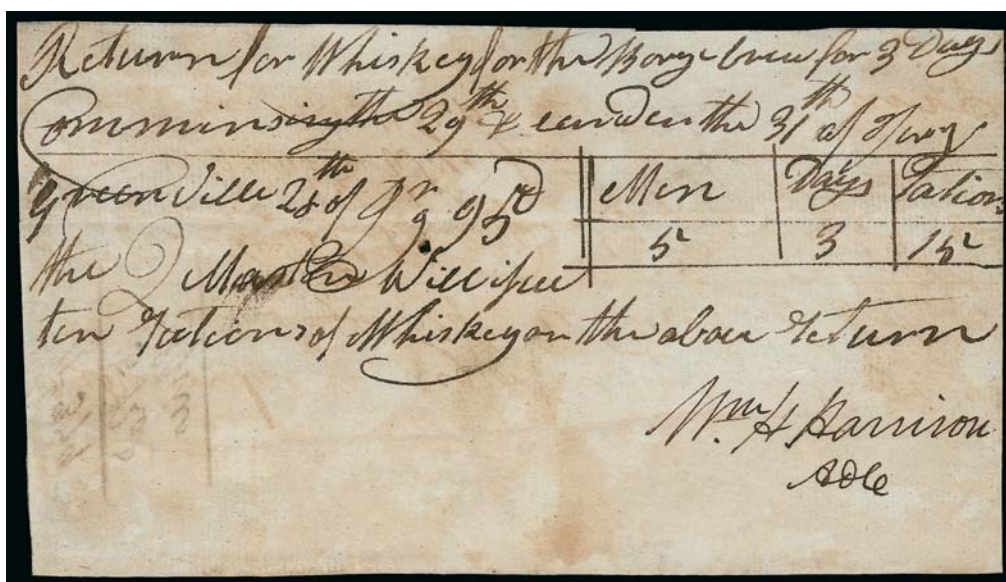 Return for Whiskey for the Barge crew for 3 Days
Commincing the 29th & eanden the 31th of
Green Ville 28th of 95
Men Days Rations
5 3 15
the Q Master Will issue
ten Rations of Whiskey on the above return
Wm H Harrison
ADC